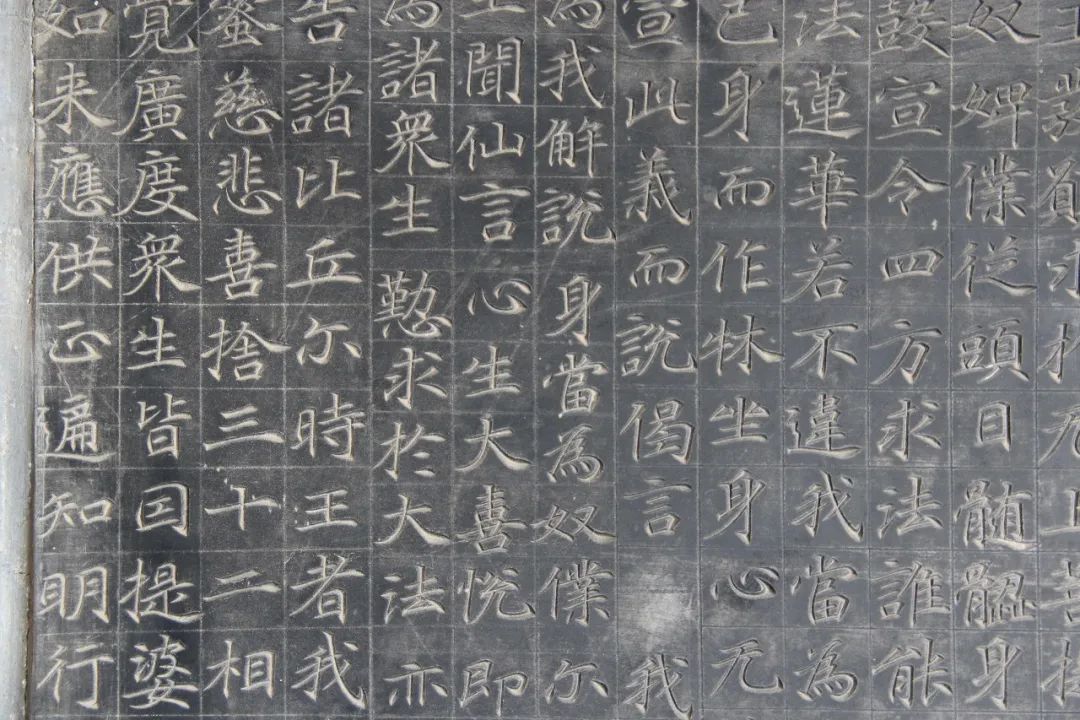 王發願求於无上菩提
奴婢僕從頭目髓腦身
鼓宣令四方求法誰能
法蓮華若不違我當為
己身而作牀坐身心无
宣此義而説偈言 我
為我解説 身當為奴僕 尔
王聞仙言 心生大喜悅 即
為諸衆生 懃求於大法 亦
告諸比丘尔時王者我
蜜慈悲喜捨三十二相
覺廣度衆生皆因提婆
如来應供正遍知明行